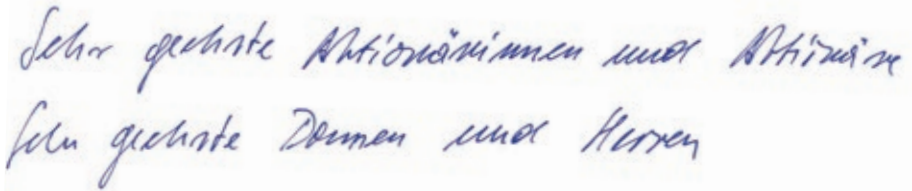 Sehr geehrte Aktionärinnen und Aktionäre
Sehr geehrte Damen und Herren